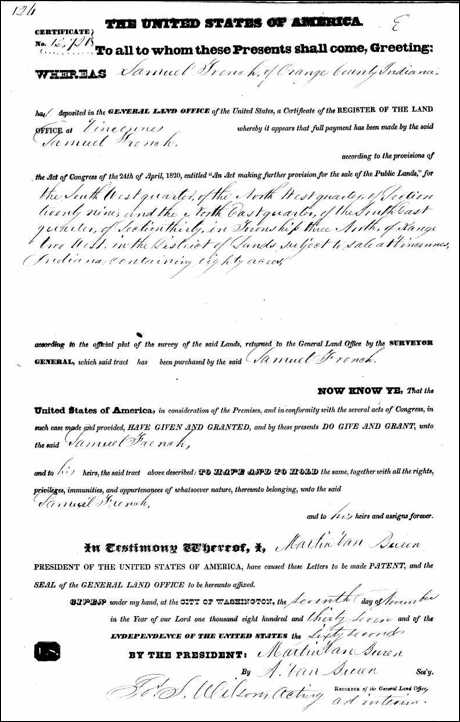 124
THE UNITED STATES OF AMERICA.
CERTIFICATE
No.
To all to whom these Presents shall come, Greeting:
WHEREAS Samuel French, of Orange County Indiana,
has deposited in the GENERAL LAND OFFICE of the United States, a Certificate of the REGISTER OF THE LAND
OFFICE at Vincennes whereby it appears that full payment has been made by the said
Samuel French.
according to the provisions of
the Act of Congress of the 24th of April, 1820, entitled "An Act making further provision for the sale of the Public Lands," for
the South West quarter, of the North West quarter, of Section
twenty nine, and the North East quarter, of the South East
quarter, of Section thirty, in Township three North, of Range
two West, in the District of Lands subject to sale at Vincennes,
Indiana, containing eighty acres,
according to the official plat of the survey of the said Lands, returned to the General Land Office by the SURVEYOR
GENERAL, which said tract has been purchased by the said Samuel French.
NOW KNOW YE, That the
United States of America, in consideration of the Premises, and in conformity with the several acts of Congress, in
such case made and provided, HAVE GIVEN AND GRANTED, and by these presents DO GIVE AND GRANT, unto
the said Samuel French,
and to his heirs, the said tract above described: TO HAVE AND TO HOLD the same, together with all the rights,
privileges, immunities, and appurtenances of whatsoever nature, thereunto belonging, unto the said
Samuel French,
and to his heirs and assigns forever.
In Testimony Whereof, I, Martin Van Buren
PRESIDENT OF THE UNITED STATES OF AMERICA, have caused these Letters to be made PATENT, and the
SEAL of the GENERAL LAND OFFICE to be hereunto affixed.
GIVEN under my hand, at the CITY OF WASHINGTON, the seventh day of November
in the Year of our Lord one thousand eight hundred and thirty seven and of the
INDEPENDENCE OF THE UNITED STATES the Sixty second
L.S.
BY THE PRESIDENT: Martin Van Buren
By A. Van Buren Sec'y.
Jos. S. Wilson, Acting RECORDER of the General Land Office,
ad interim.